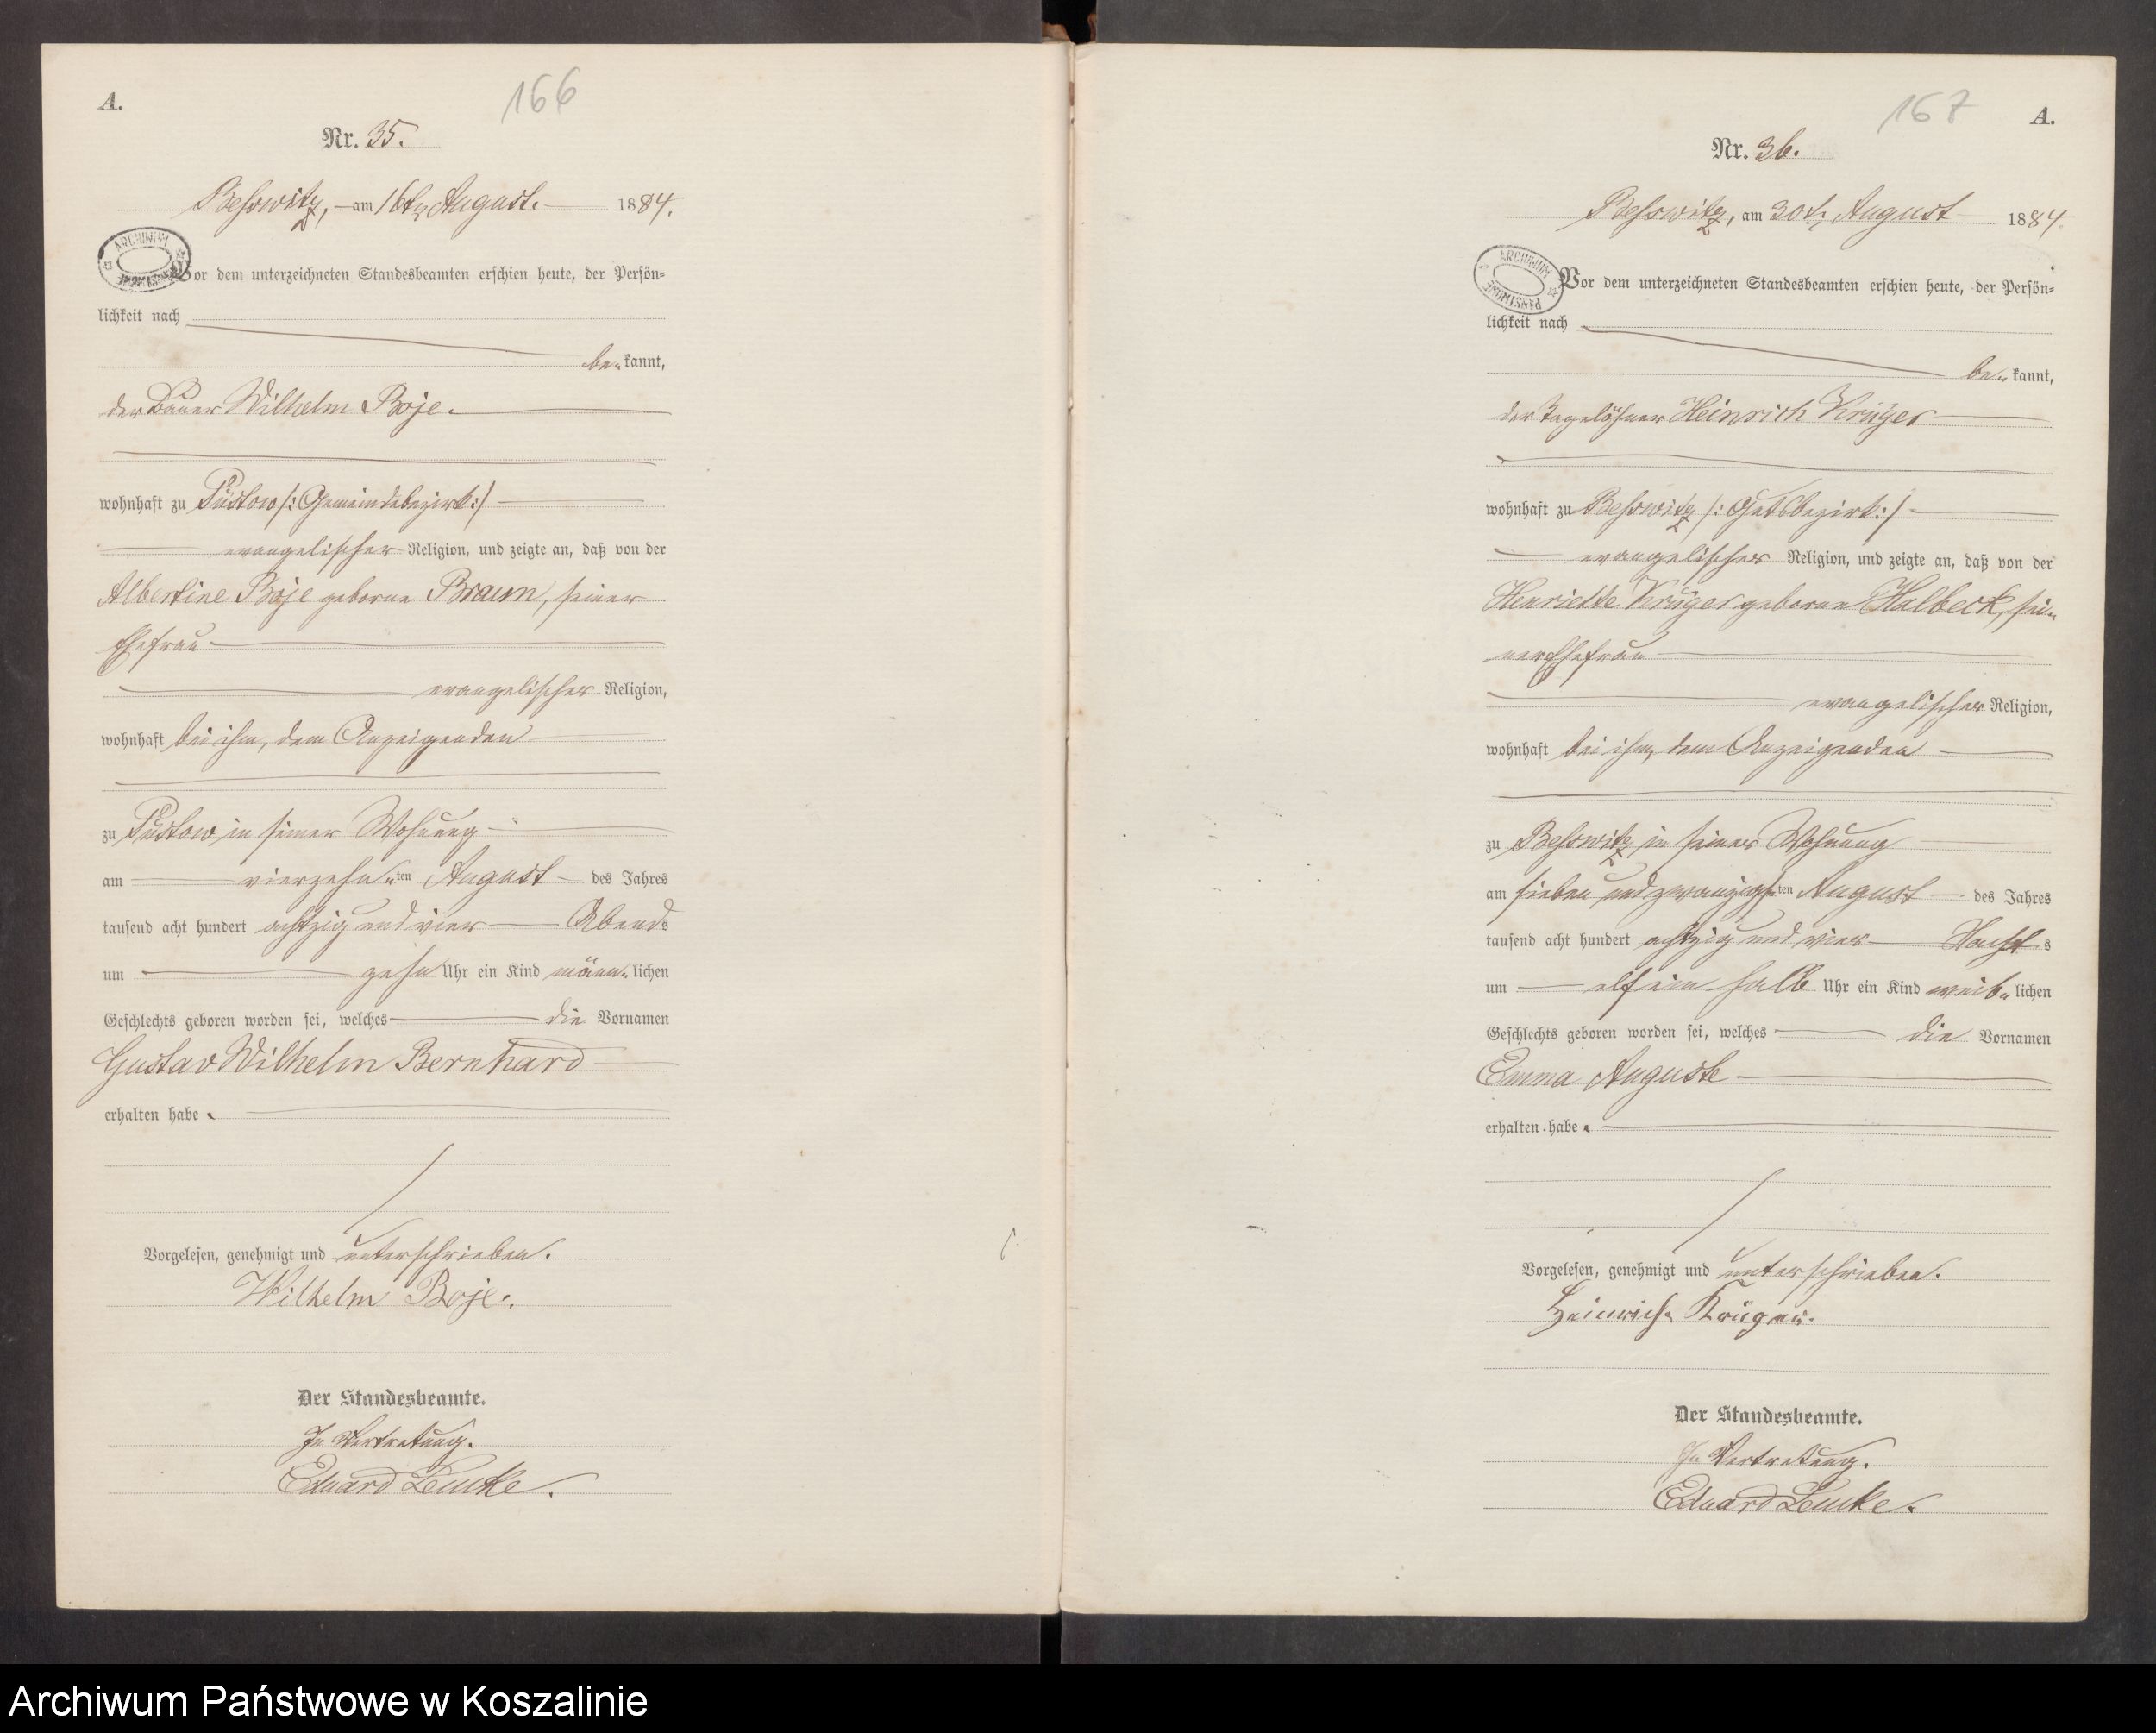 A.
166
Nr. 35.
Beßwitz, am 16ten August. 1884.
ARCHIWUM
Vor dem unterzeichneten Standesbeamten erschien heute, der Persön-
lichkeit nach
bekannt,
der Bauer Wilhelm Boje.
wohnhaft zu Püstow /: Gemeindebezirk :/
evangelischer Religion, und zeigte an, daß von der
Albertine Boje geborne Braun, seiner
Ehefrau
evangelischer Religion,
wohnhaft bei ihm, dem Anzeigenden
zu Püstow in seiner Wohnung
am vierzehnten August des Jahres
tausend acht hundert achtzig und vier Abends
um zehn Uhr ein Kind männlichen
Geschlechts geboren worden sei, welches die Vornamen
Gustav Wilhelm Bernhard
erhalten habe.
Vorgelesen, genehmigt und unterschrieben.
Wilhelm Boje.
Der Standesbeamte.
In Vertretung.
Eduard Lemke.
167
A.
Nr. 36.
Beßwitz, am 30ten August 1884.
ARCHIWUM PAŃSTWOWE
Vor dem unterzeichneten Standesbeamten erschien heute, der Persön-
lichkeit nach
bekannt,
der Tagelöhner Heinrich Krüger
wohnhaft zu Beßwitz /: Gutsbezirk :/
evangelischer Religion, und zeigte an, daß von der
Henriette Krüger geborne Halbeck, sei-
ner Ehefrau
evangelischer Religion,
wohnhaft bei ihm, dem Anzeigenden
zu Beßwitz in seiner Wohnung
am sieben und zwanzigsten August des Jahres
tausend acht hundert achtzig und vier Nachts
um elf ein halb Uhr ein Kind weiblichen
Geschlechts geboren worden sei, welches die Vornamen
Emma Auguste
erhalten habe.
Vorgelesen, genehmigt und unterschrieben.
Heinrich Krüger.
Der Standesbeamte.
In Vertretung.
Eduard Lemke.
Archiwum Państwowe w Koszalinie